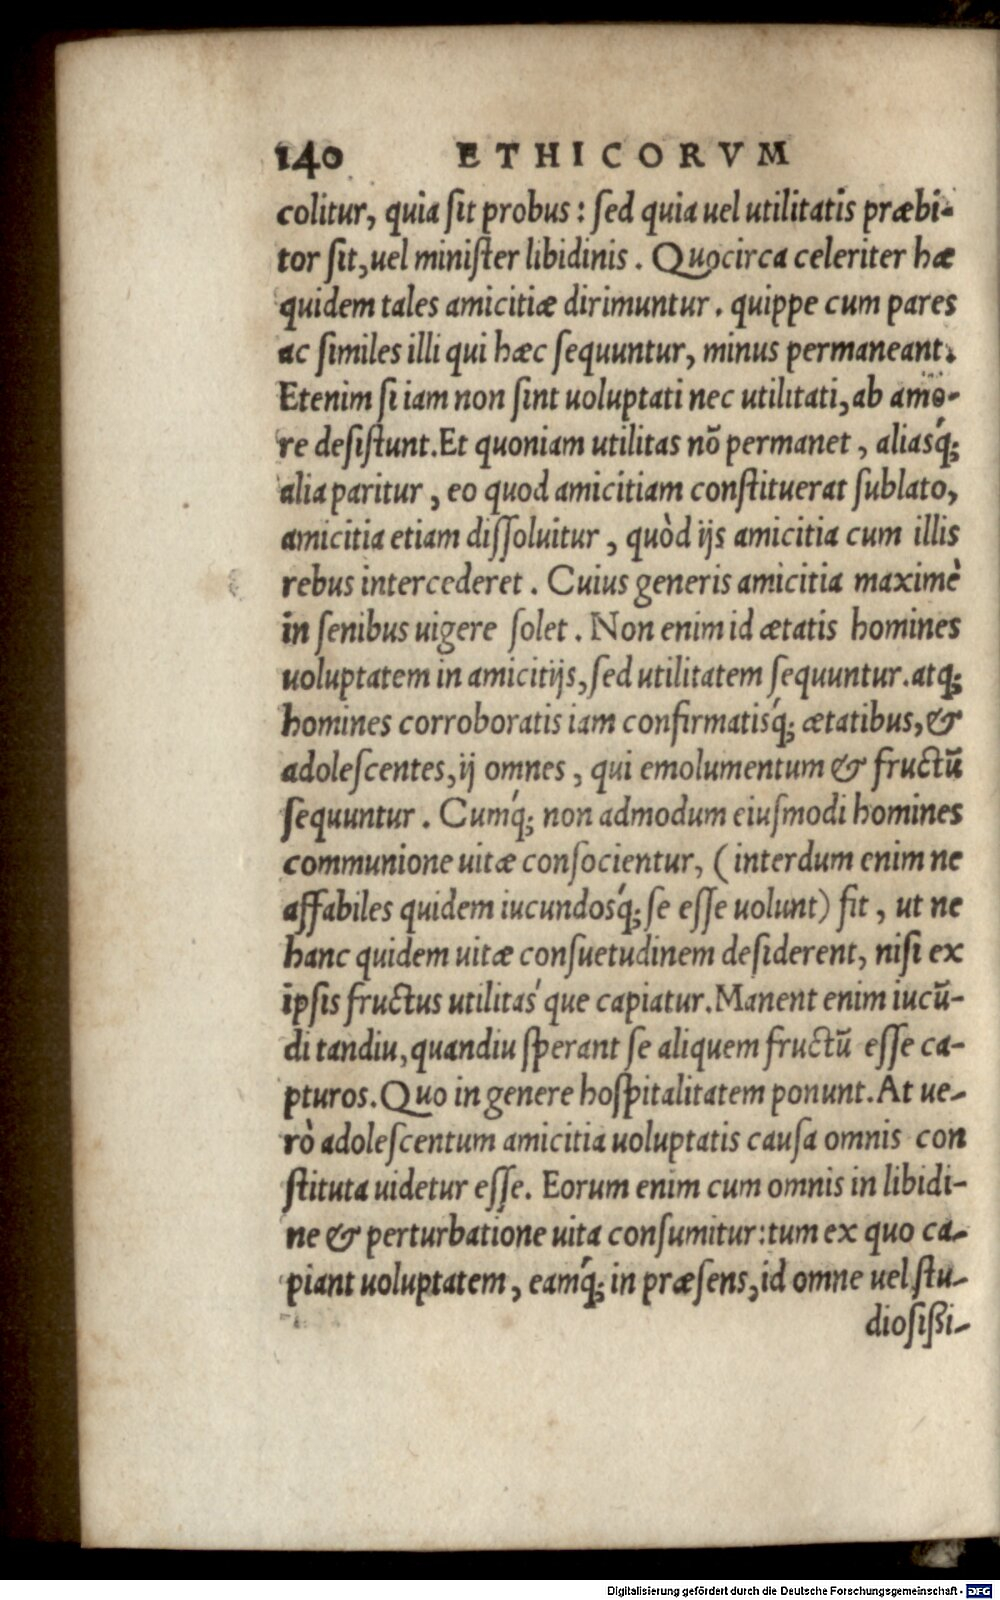 140 ETHICORVM
colitur, quia ſit probus : ſed quia uel utilitatis præbi-
tor ſit, uel miniſter libidinis . Quocirca celeriter hæ
quidem tales amicitiæ dirimuntur . quippe cum pares
ac ſimiles illi qui hæc ſequuntur, minus permaneant.
Etenim ſi iam non ſint uoluptati nec utilitati, ab amo-
re deſiſtunt. Et quoniam utilitas nō permanet , aliasq́;
alia paritur , eo quod amicitiam conſtituerat ſublato,
amicitia etiam diſſoluitur , quòd ijs amicitia cum illis
rebus intercederet . Cuius generis amicitia maximè
in ſenibus uigere ſolet . Non enim id ætatis homines
uoluptatem in amicitijs, ſed utilitatem ſequuntur. atq;
homines corroboratis iam confirmatisq́; ætatibus, &
adoleſcentes, ij omnes , qui emolumentum & fructū
ſequuntur . Cumq́; non admodum eiuſmodi homines
communione uitæ conſocientur, ( interdum enim ne
affabiles quidem iucundosq́; ſe eſſe uolunt) fit , ut ne
hanc quidem uitæ conſuetudinem deſiderent, niſi ex
ipſis fructus utilitas´que capiatur. Manent enim iucū-
di tandiu, quandiu ſperant ſe aliquem fructū eſſe ca-
pturos. Quo in genere hoſpitalitatem ponunt. At ue-
rò adoleſcentum amicitia uoluptatis cauſa omnis con
ſtituta uidetur eſſe. Eorum enim cum omnis in libidi-
ne & perturbatione uita conſumitur: tum ex quo ca-
piant uoluptatem , eamq́; in præſens, id omne uel ſtu-
dioſißi-
Digitalisierung gefördert durch die Deutsche Forschungsgemeinschaft - DFG